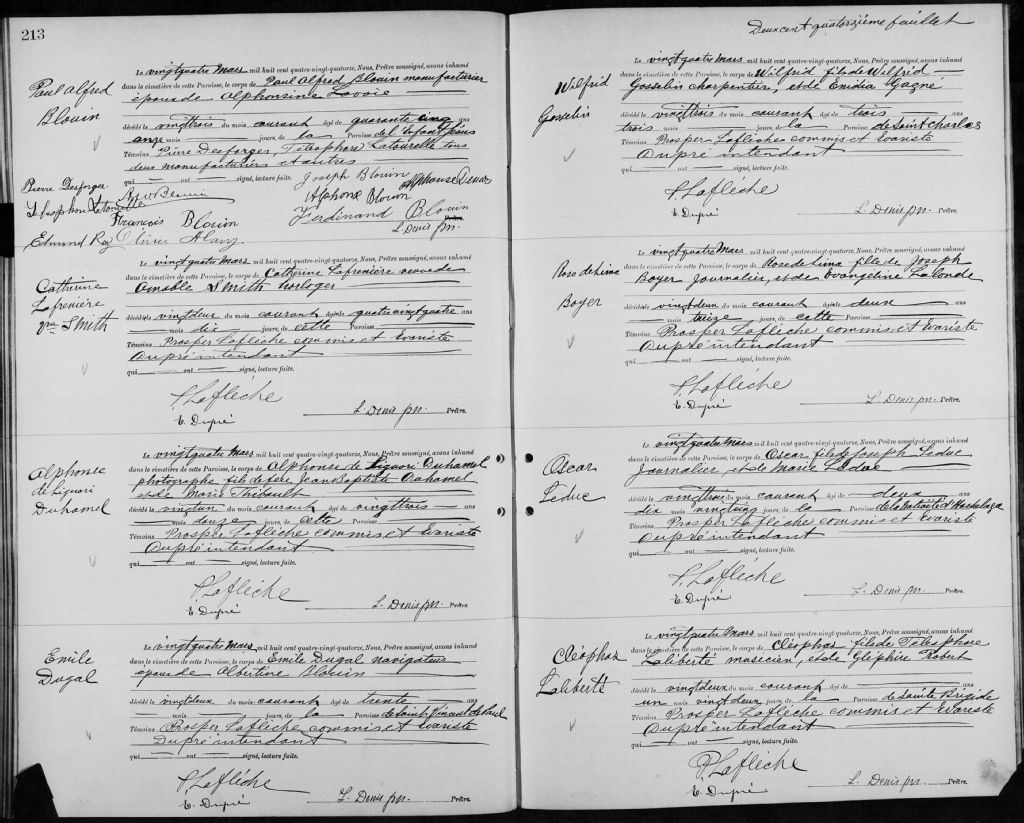 213
Paul Alfred
Blouin
Le vingtquatre Mars mil huit cent quatre-vingt-quatorze, Nous, Prêtre soussigné, avons inhumé
dans le cimetière de cette Paroisse, le corps de Paul Alfred Blouin manufacturier
époux de Alphonsine Lavoie
décédé le vingttrois du mois courant âgé de quarante cinq ans
onze mois jours, de la Paroisse de l'Enfant Jésus
Témoins Pierre Desforges, Télesphore Latourelle tous
deux manufacturiers et autres
qui ont signé, lecture faite. Joseph Blouin
Pierre Desforges Blouin Alphonse Blouin
Telesphore Latourelle
François Blouin Ferdinand Blouin
Edmund Roy Olivier L. Denis ptr. Prêtre.
Catherine
Lafrenière
Vve Smith
Le vingtquatre Mars mil huit cent quatre-vingt-quatorze, Nous, Prêtre soussigné, avons inhumé
dans le cimetière de cette Paroisse, le corps de Catherine Lafrenière veuve de
Amable Smith horloger
décédée le vingtdeux du mois courant âgée de quatre vingt quatre ans
mois dix jours, de cette Paroisse
Témoins Prosper Laflèche commis et Evariste
Dupré intendant
qui ont signé, lecture faite.
P. Laflèche
E. Dupré L. Denis ptr. Prêtre.
Alphonse
de Liguori
Duhamel
Le vingtquatre Mars mil huit cent quatre-vingt-quatorze, Nous, Prêtre soussigné, avons inhumé
dans le cimetière de cette Paroisse, le corps de Alphonse de Liguori Duhamel
photographe fils de feu Jean Baptiste Duhamel
et de Marie Thibault
décédé le vingtun du mois courant âgé de vingttrois ans
mois douze jours, de cette Paroisse
Témoins Prosper Laflèche commis et Evariste
Dupré intendant
qui ont signé, lecture faite.
P. Laflèche
E. Dupré L. Denis ptr. Prêtre.
Emile
Dugal
Le vingtquatre Mars mil huit cent quatre-vingt-quatorze, Nous, Prêtre soussigné, avons inhumé
dans le cimetière de cette Paroisse, le corps de Emile Dugal navigateur
époux de Albertine Blouin
décédé le vingtdeux du mois courant âgé de trente ans
mois jours, de la Paroisse de Sainte Vincent de Paul
Témoins Prosper Laflèche commis et Evariste
Dupré intendant
qui ont signé, lecture faite.
P. Laflèche
E. Dupré L. Denis ptr. Prêtre.
Deux cent quatorzième feuillet
Wilfrid
Gosselin
Le vingtquatre Mars mil huit cent quatre-vingt-quatorze, Nous, Prêtre soussigné, avons inhumé
dans le cimetière de cette Paroisse, le corps de Wilfrid fils de Wilfrid
Gosselin charpentier, et de Enidia Gagné
décédé le vingttrois du mois courant âgé de trois ans
trois mois jours, de la Paroisse de Saint Charles
Témoins Prosper Laflèche commis et Evariste
Dupré intendant
qui ont signé, lecture faite.
P. Laflèche
E. Dupré L. Denis ptr. Prêtre.
Rose de Lima
Boyer
Le vingtquatre Mars mil huit cent quatre-vingt-quatorze, Nous, Prêtre soussigné, avons inhumé
dans le cimetière de cette Paroisse, le corps de Rose de Lima fille de Joseph
Boyer journalier, et de Evangéline Lalonde
décédée le vingtdeux du mois courant âgée de deux ans
mois treize jours, de cette Paroisse
Témoins Prosper Laflèche commis et Evariste
Dupré intendant
qui ont signé, lecture faite.
P. Laflèche
E. Dupré L. Denis ptr. Prêtre.
Oscar
Leduc
Le vingtquatre Mars mil huit cent quatre-vingt-quatorze, Nous, Prêtre soussigné, avons inhumé
dans le cimetière de cette Paroisse, le corps de Oscar fils de Joseph Leduc
journalier et de Marie Leduc
décédé le vingttrois du mois courant âgé de deux ans
dix mois vingtcinq jours, de la Paroisse de la Nativité d'Hochelaga
Témoins Prosper Laflèche commis et Evariste
Dupré intendant
qui ont signé, lecture faite.
P. Laflèche
E. Dupré L. Denis ptr. Prêtre.
Cléophas
Laliberté
Le vingtquatre Mars mil huit cent quatre-vingt-quatorze, Nous, Prêtre soussigné, avons inhumé
dans le cimetière de cette Paroisse, le corps de Cléophas fils de Télesphore
Laliberté musicien, et de Gléphire Robert
décédé le vingtdeux du mois courant âgé de ans
un mois vingtdeux jours, de la Paroisse de Sainte Brigide
Témoins Prosper Laflèche commis et Evariste
Dupré intendant
qui ont signé, lecture faite.
P. Laflèche
E. Dupré L. Denis ptr. Prêtre.